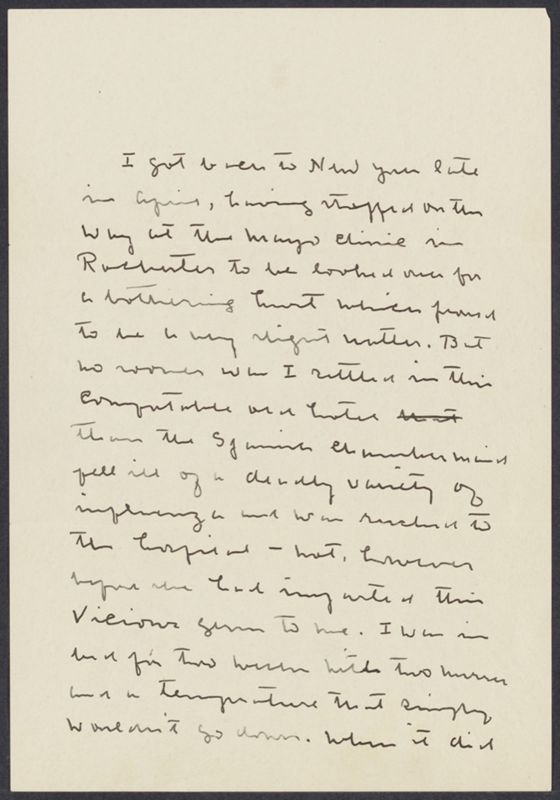 I got back to New York late
in April, having stopped on the
way at the Mayo Clinic in
Rochester to be looked over for
a bothering hurt which proved
to be a very slight matter. But
no sooner was I settled in this
comfortable old hotel that
than the Spanish chambermaid
fell ill of a deadly variety of
influenza and was rushed to
the hospital - not, however
before she had imparted this
vicious germ to me. I was in
bed for two weeks with two nurses
and a temperature that simply
wouldn't go down. When it did